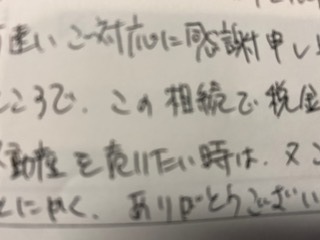 速い ご対応に感謝申し
ところで、この相続で税金
動産を売りたい時は、又ご
とにかく、ありがとうござい